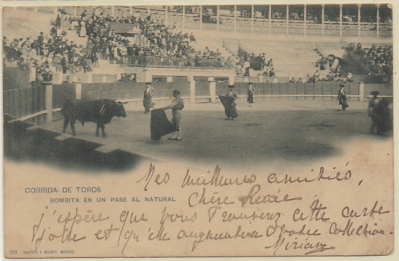 CORRIDA DE TOROS
BOMBITA EN UN PASE AL NATURAL
Mes meilleures amitiés,
Chère Renée
j'espère que vous trouverez cette carte
jolie et qu'elle augmentera votre collection.
Miriam